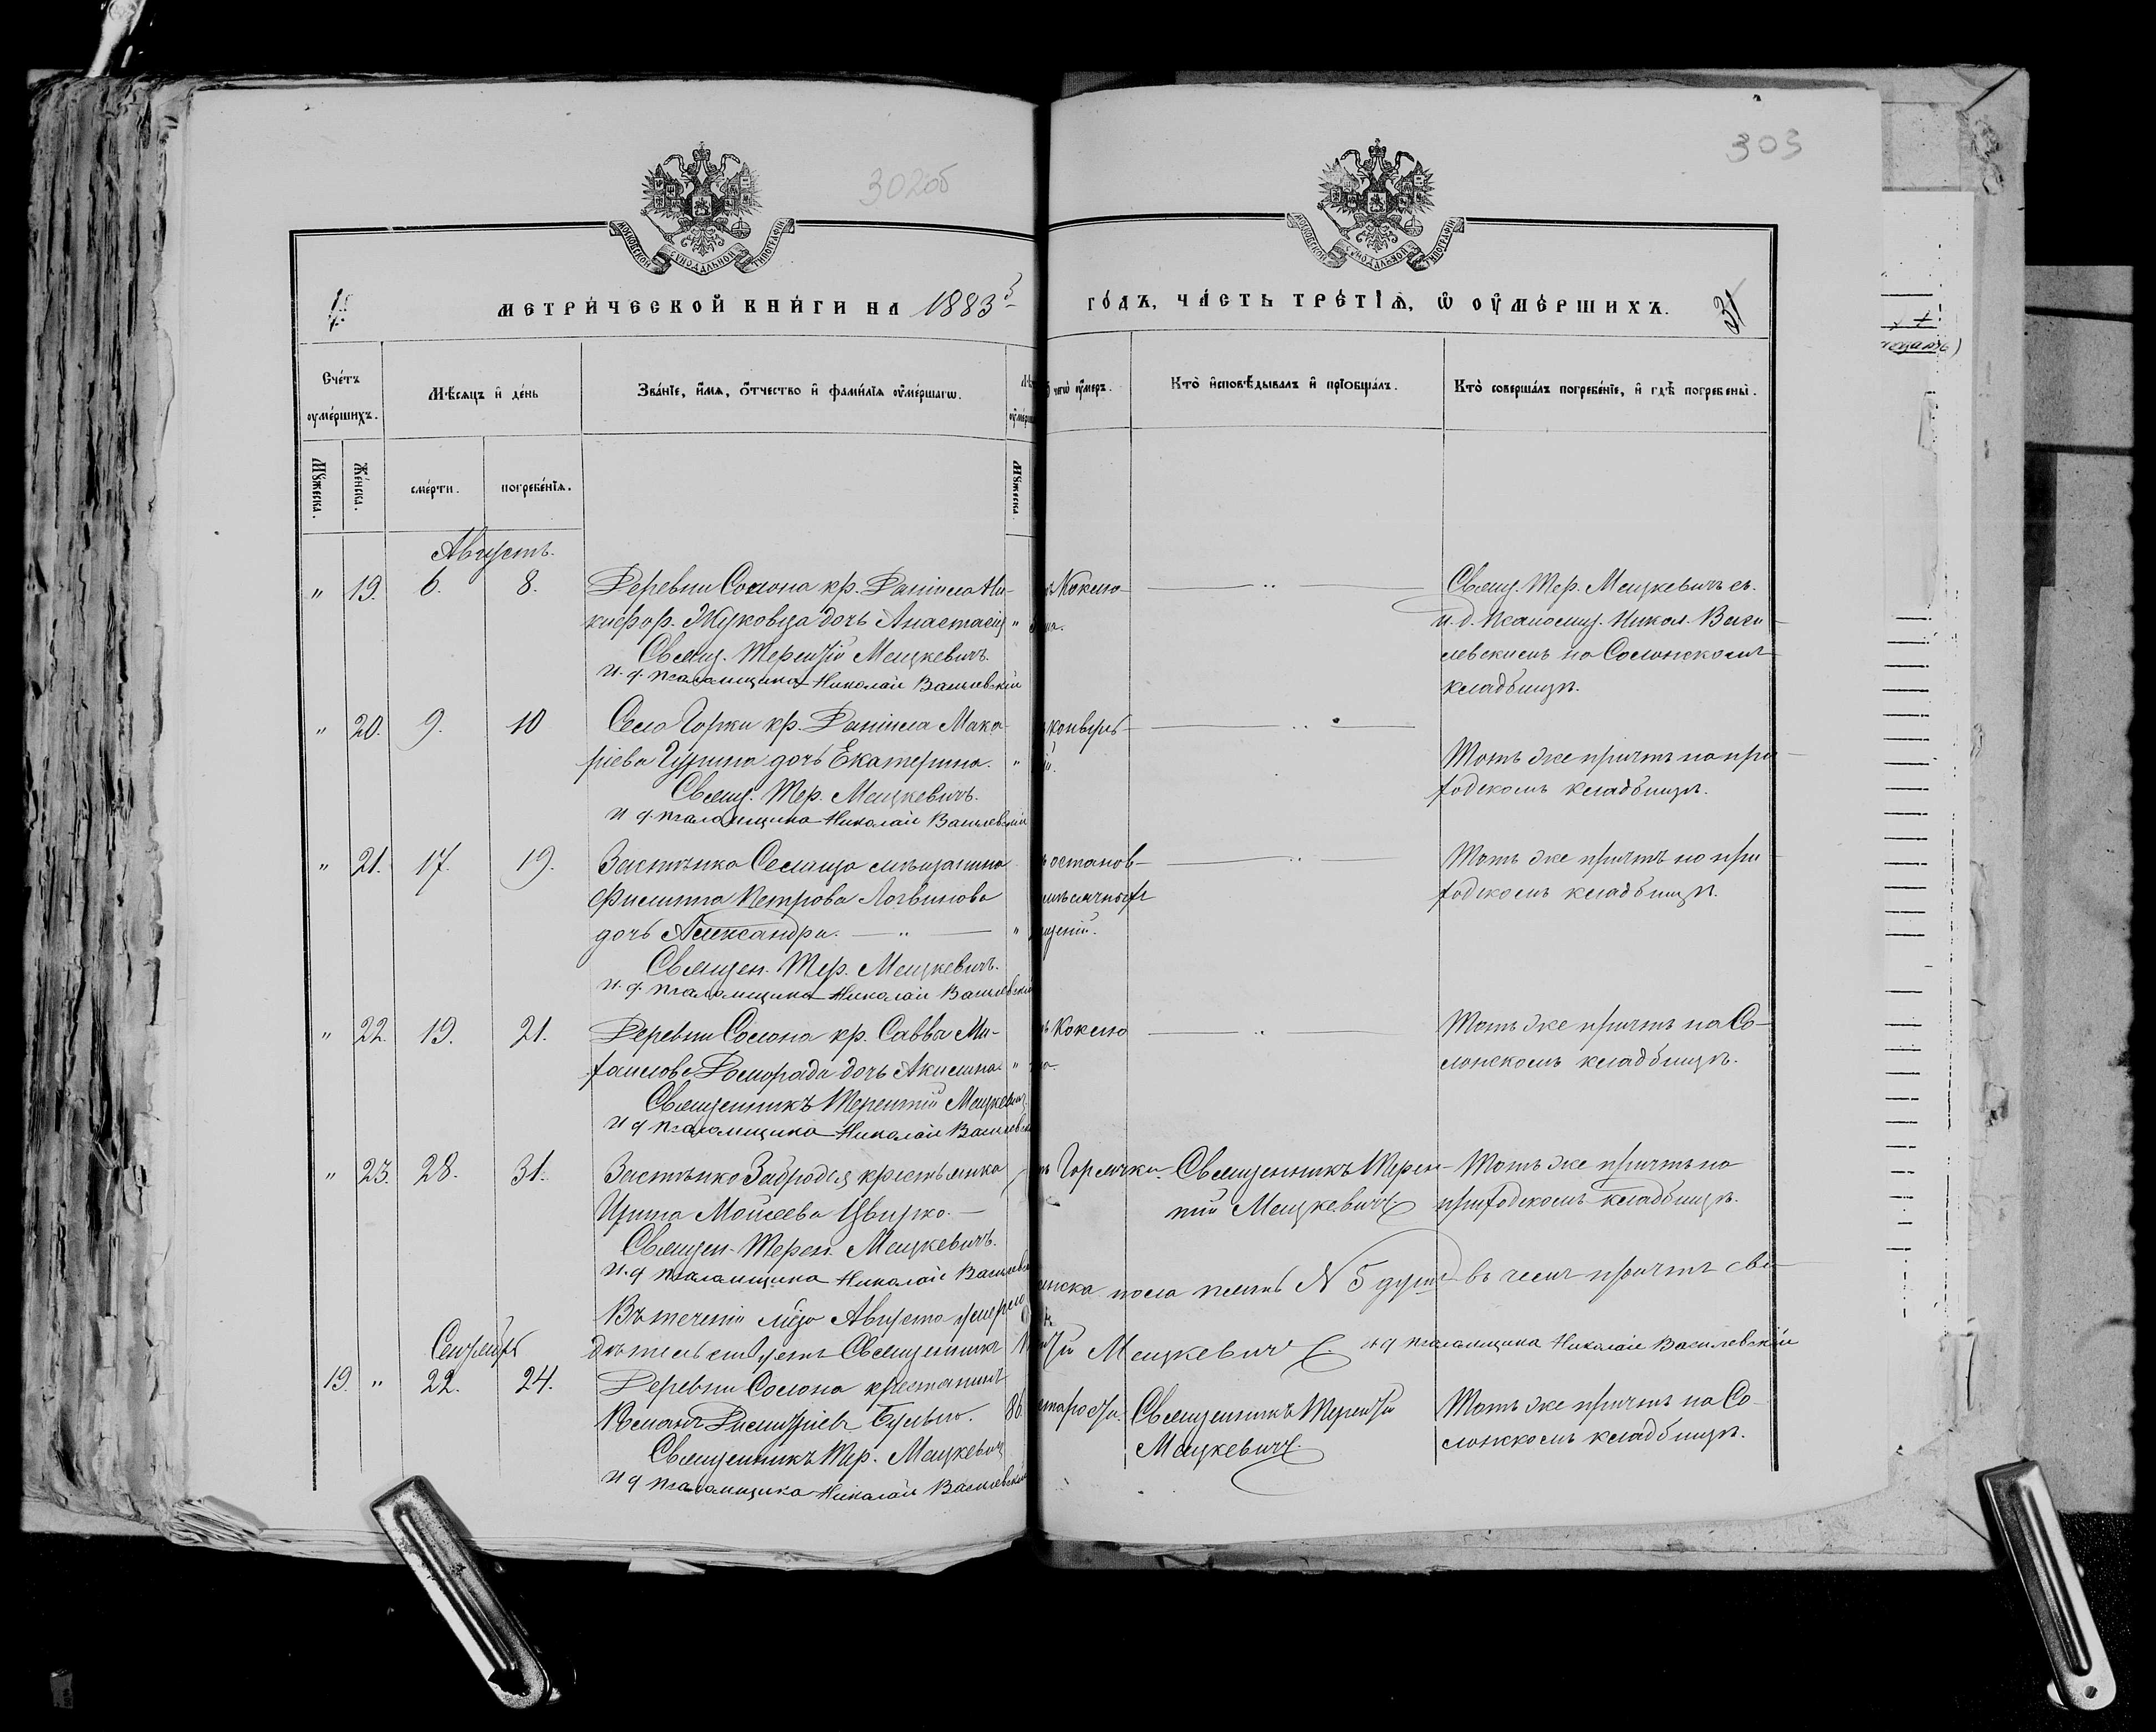 302об
303
МОСКОВСКОЙ СѴНОДАЛЬНОЙ ТИПОГРАФІИ
МОСКОВСКОЙ СѴНОДАЛЬНОЙ ТИПОГРАФІИ
МЕТРИ́ЧЕСКОЙ КНИ́ГИ НА 1883й
ГО́ДЪ, ЧА́СТЬ ТРЕ́ТІѦ, Ѡ ОУ҆МЕ́РШИХЪ. 31
Сче́тъ оумє́ршихъ.
Мѣ́сяцъ и де́нь
Зва́ніе, и́мя, о́тчество и фами́лія оуме́ршагѡ.
ѿ чегѡ̀ оу́меръ.
Кто̀ исповѣ́дывалъ и пріобща́лъ.
Кто̀ соверша́лъ погребе́ніе, и гдѣ̀ погребены̀.
Мꙋ́жеска.
Же́нска.
сме́рти.
погребе́нія.
Мꙋ́жеска
Августъ.
" 19. 6. 8. Деревни Солона кр. Даніила Ни-
кифор. Жуковца дочь Анастасія "
Свящ. Терентій Мацкевичъ.
и. д. псаломщика Николай Василевскій
Коклю-
ша.
Свящ. Тер. Мацкевичъ съ.
и. д. псаломщ. Никол. Васи-
левскимъ на Солонскомъ
кладбищѣ.
" 20. 9. 10 Село Горки кр. Даніила Мака-
ріева Гурина дочь Екатерина. "
Свящ. Тер. Мацкевичъ.
и д. псаломщика Николай Василевскій
Тотъ же причтъ на при-
ходскомъ кладбищѣ.
" 21. 17. 19. Застѣнка Селища мѣщанина
Филиппа Петрова Логвинова
дочь Александра. — " — "
Священ. Тер. Мацкевичъ.
и. д. псаломщика Николай Василевскій
останов-
Тотъ же причтъ на при
ходскомъ кладбищѣ.
" 22. 19. 21. Деревни Солона кр. Савва Ми-
хаилова Доморада дочь Акилина "
Священникъ Терентій Мацкевич
и д псаломщика Николай Василевск
Коклю
Тотъ же причтъ на Со-
лонскомъ кладбищѣ.
" 23. 28. 31. Застѣнка Забродья крестьянка
Ирина Моисеева Цвирко. —
Священ. Терен. Мацкевичъ.
и. д псаломщика Николай Василевс
Горячки.
Священникъ Терен-
тій Мацкевичъ
Тотъ же причтъ на
приходскомъ кладбищѣ.
Въ теченіи мца Августа умерло
женска пола пять N 5 душъ въ чемъ причтъ сви-
дѣтельствуетъ Священникъ
Мацкевичъ. и д псаломщика Николай Василевскій
Сентябрь
19. " 22. 24. Деревни Солона крестьянинъ
Романъ Димитріевъ Бульго. 86
Священникъ Тер. Мацкевич
и д псаломщика Николай Василевскій
старости.
Священникъ Терентій
Мацкевичъ.
Тотъ же причтъ на Со-
лонскомъ кладбищѣ.